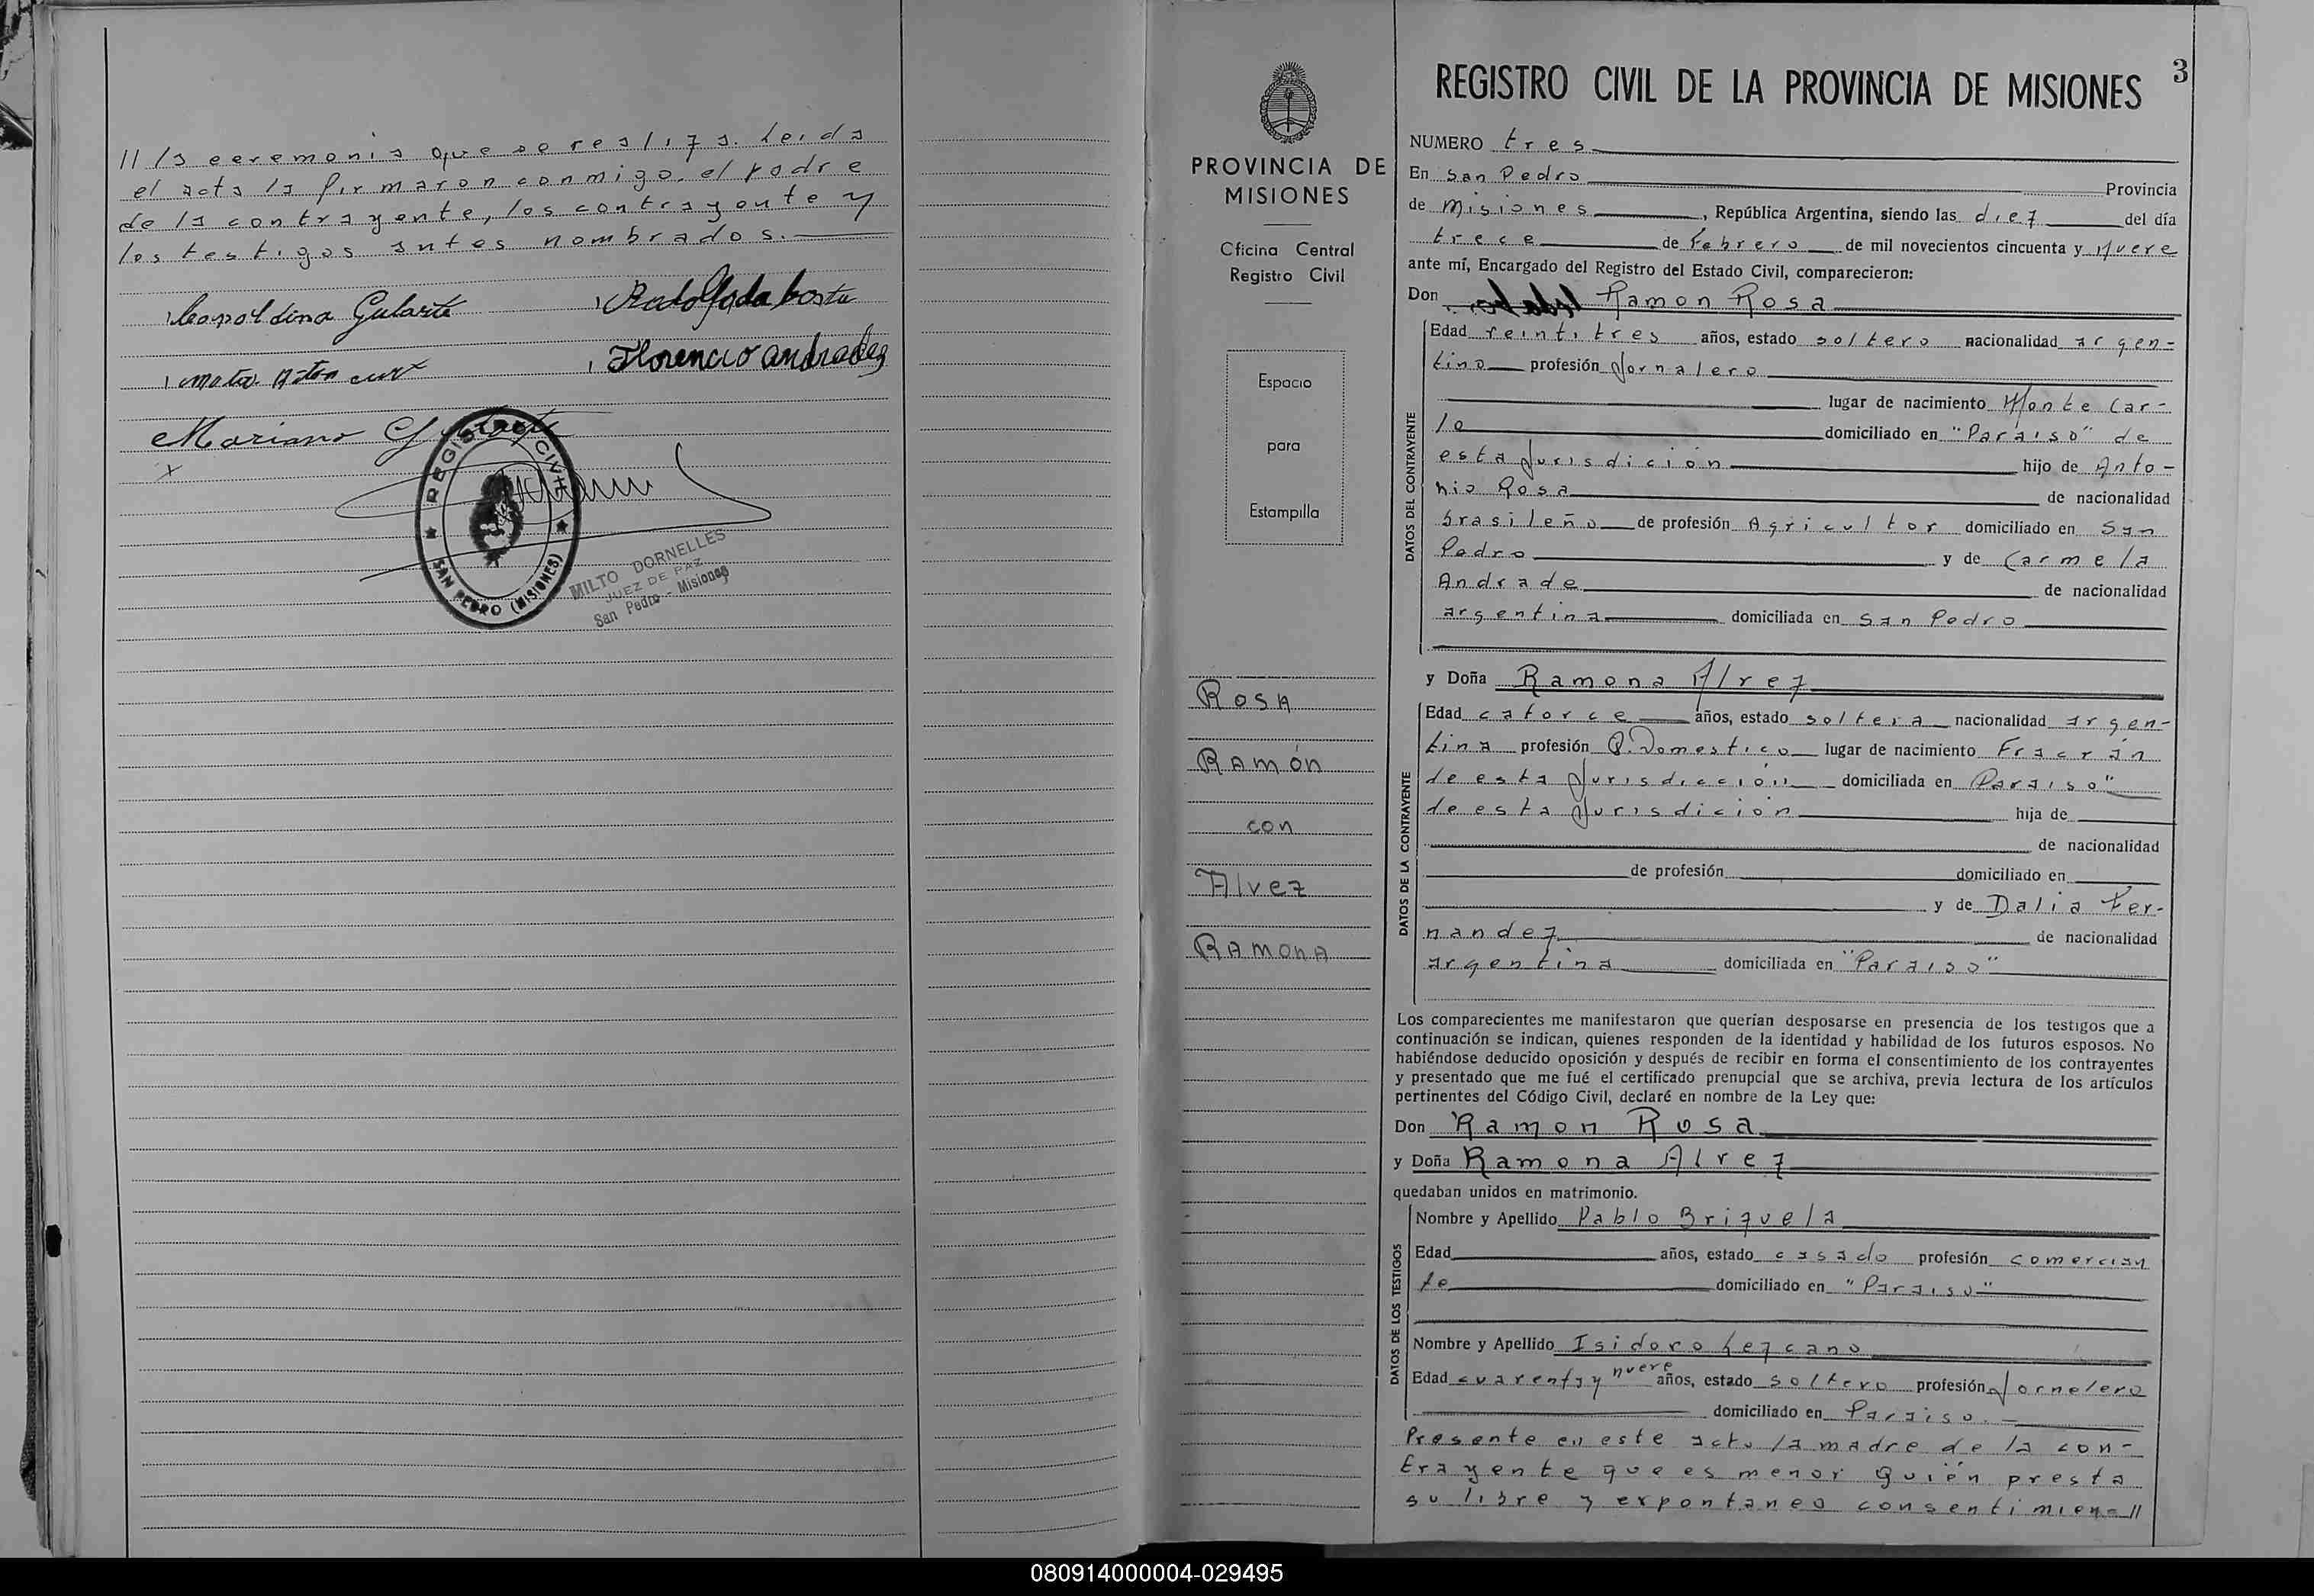 // la ceremonia que se realiza. Leida
el acta la firmaron conmigo, el padre
de la contrayente, los contrayente y
los testigos antes nombrados.
Leopoldina Gularte
Florencio andrades
Mariano
x
REGISTRO CIVIL
SAN PEDRO (MISIONES)
MILTO DORNELLES
JUEZ DE PAZ
San Pedro - Misiones
PROVINCIA DE
MISIONES
Oficina Central
Registro Civil
Espacio
para
Estampilla
ROSA
RAMÓN
con
Alvez
RAMONA
3
REGISTRO CIVIL DE LA PROVINCIA DE MISIONES
NUMERO tres
En San Pedro Provincia
de Misiones, República Argentina, siendo las diez del día
trece de Febrero de mil novecientos cincuenta y Nueve
ante mí, Encargado del Registro del Estado Civil, comparecieron:
Don Ramon Rosa
DATOS DEL CONTRAYENTE
Edad veintitres años, estado soltero nacionalidad argen-
tino profesión Jornalero
lugar de nacimiento Monte Car-
lo domiciliado en "Paraiso" de
esta Jurisdición hijo de Anto-
nio Rosa de nacionalidad
brasileño de profesión Agricultor domiciliado en San
Pedro y de Carmela
Andrade de nacionalidad
argentina domiciliada en San Pedro
y Doña Ramona Alvez
DATOS DE LA CONTRAYENTE
Edad catorce años, estado soltera nacionalidad argen-
tina profesión Q. Domestico lugar de nacimiento Fracrán
de esta Jurisdicción domiciliada en Paraiso"
de esta Jurisdición hija de
de nacionalidad
de profesión domiciliado en
y de Dalia Fer-
nandez de nacionalidad
argentina domiciliada en "Paraiso"
Los comparecientes me manifestaron que querían desposarse en presencia de los testigos que a
continuación se indican, quienes responden de la identidad y habilidad de los futuros esposos. No
habiéndose deducido oposición y después de recibir en forma el consentimiento de los contrayentes
y presentado que me fué el certificado prenupcial que se archiva, previa lectura de los artículos
pertinentes del Código Civil, declaré en nombre de la Ley que:
Don Ramon Rosa
y Doña Ramona Alvez
quedaban unidos en matrimonio.
DATOS DE LOS TESTIGOS
Nombre y Apellido Pablo Brizuela
Edad años, estado casado profesión comercian
te domiciliado en "Paraiso"
Nombre y Apellido Isidoro Lezcano
Edad cuarenta y nueve años, estado soltero profesión Jornelero
domiciliado en Paraiso.
Presente en este acto la madre de la con-
trayente que es menor Quién presta
su libre y expontaneo consentimien- //
080914000004-029495